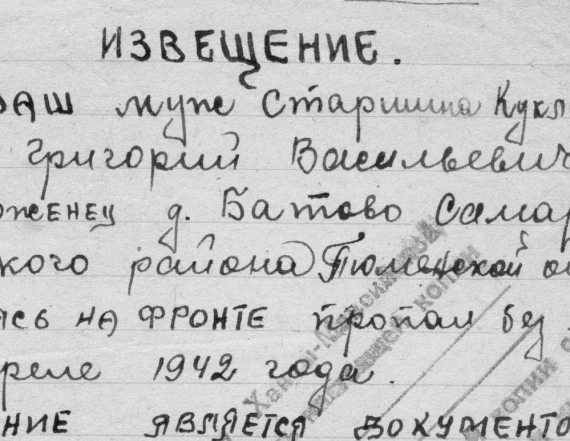 ИЗВЕЩЕНИЕ.
ВАШ муж Старшина Кукл
Григорий Васильевич
оженец д. Батово Самар
кого района Тюменской о
ясь НА ФРОНТЕ пропал без
преле 1942 года.
НИЕ ЯВЛЯЕТСЯ ДОКУМЕНТО